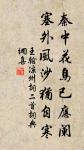 秦中花鳥已應闌
塞外風沙猶自寒
王翰涼州詞二首詞典
網喜